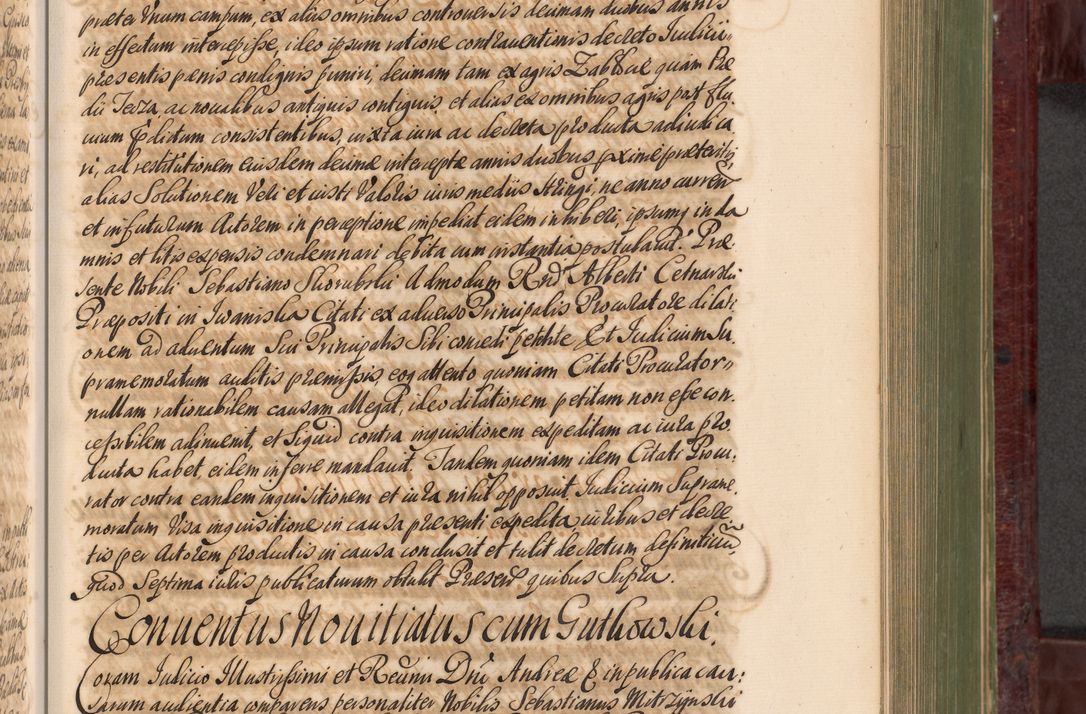 præter Vnum campum, ex aliis omnibus controuersis decimam duobus annis
in effectum intercepisse, ideo ipsum ratione contrauentionis decreto Iudicii
præsentis pænis condignis puniri, decimam tam ex agris quam Præ
dii ac noualibus antiquis contiguis et alias ex omnibus agris post flu,
uium consistentibus, iuxta iura ac decreta producta adiudica
ri, ad restitutionem eiusdem decimæ interceptæ annis duobus proxime præteritis
alias Solutionem Veri et iusti Valoris iuris mediis stringi, ne anno curren
et in futurum Actorem in perceptione impediat eidem inhiberi, ipsumq in da
mnis et litis expensis condemnari debita cum instantia postulauit. Præ
sente Nobili Sebastiano Skorubski Admodum Rnd Alberti Cetnarski
Præpositi in Iwaniska Citati ex aduerso Principalis Procuratore dilati
onem ad aduentum Sui Principalis Sibi concedi petente Et Iudicium Su,
pramemoratum auditis præmissis, eoq attento quoniam Citati Procurator
nullam rationabilem causam allegat, ideo dilationem petitam non esse con,
cessibilem adinuenit, et Siquid contra inquisitionem expeditam ac iura pro
ducta habet, eidem inferre mandauit. Tandem quoniam idem Citati Procu,
rator contra eandem inquisitionem et iura nihil opposuit, Iudicium Supræme,
moratum Visa inquisitione in causa præsenti expedita iuribus et decre
tis per Actorem productis in causa conclusit et tulit decretum definitiuu
quod Septima iuris publicaturum obtulit Præsen quibus Supra.
Conuentus Nouitianus cum Guthowski.
Coram Iudicio Illustrissimi et Reuermi Dni Andreæ & in publica cau,
sarum audientia comparens personaliter Nobilis Sebastianus Mitrzynski